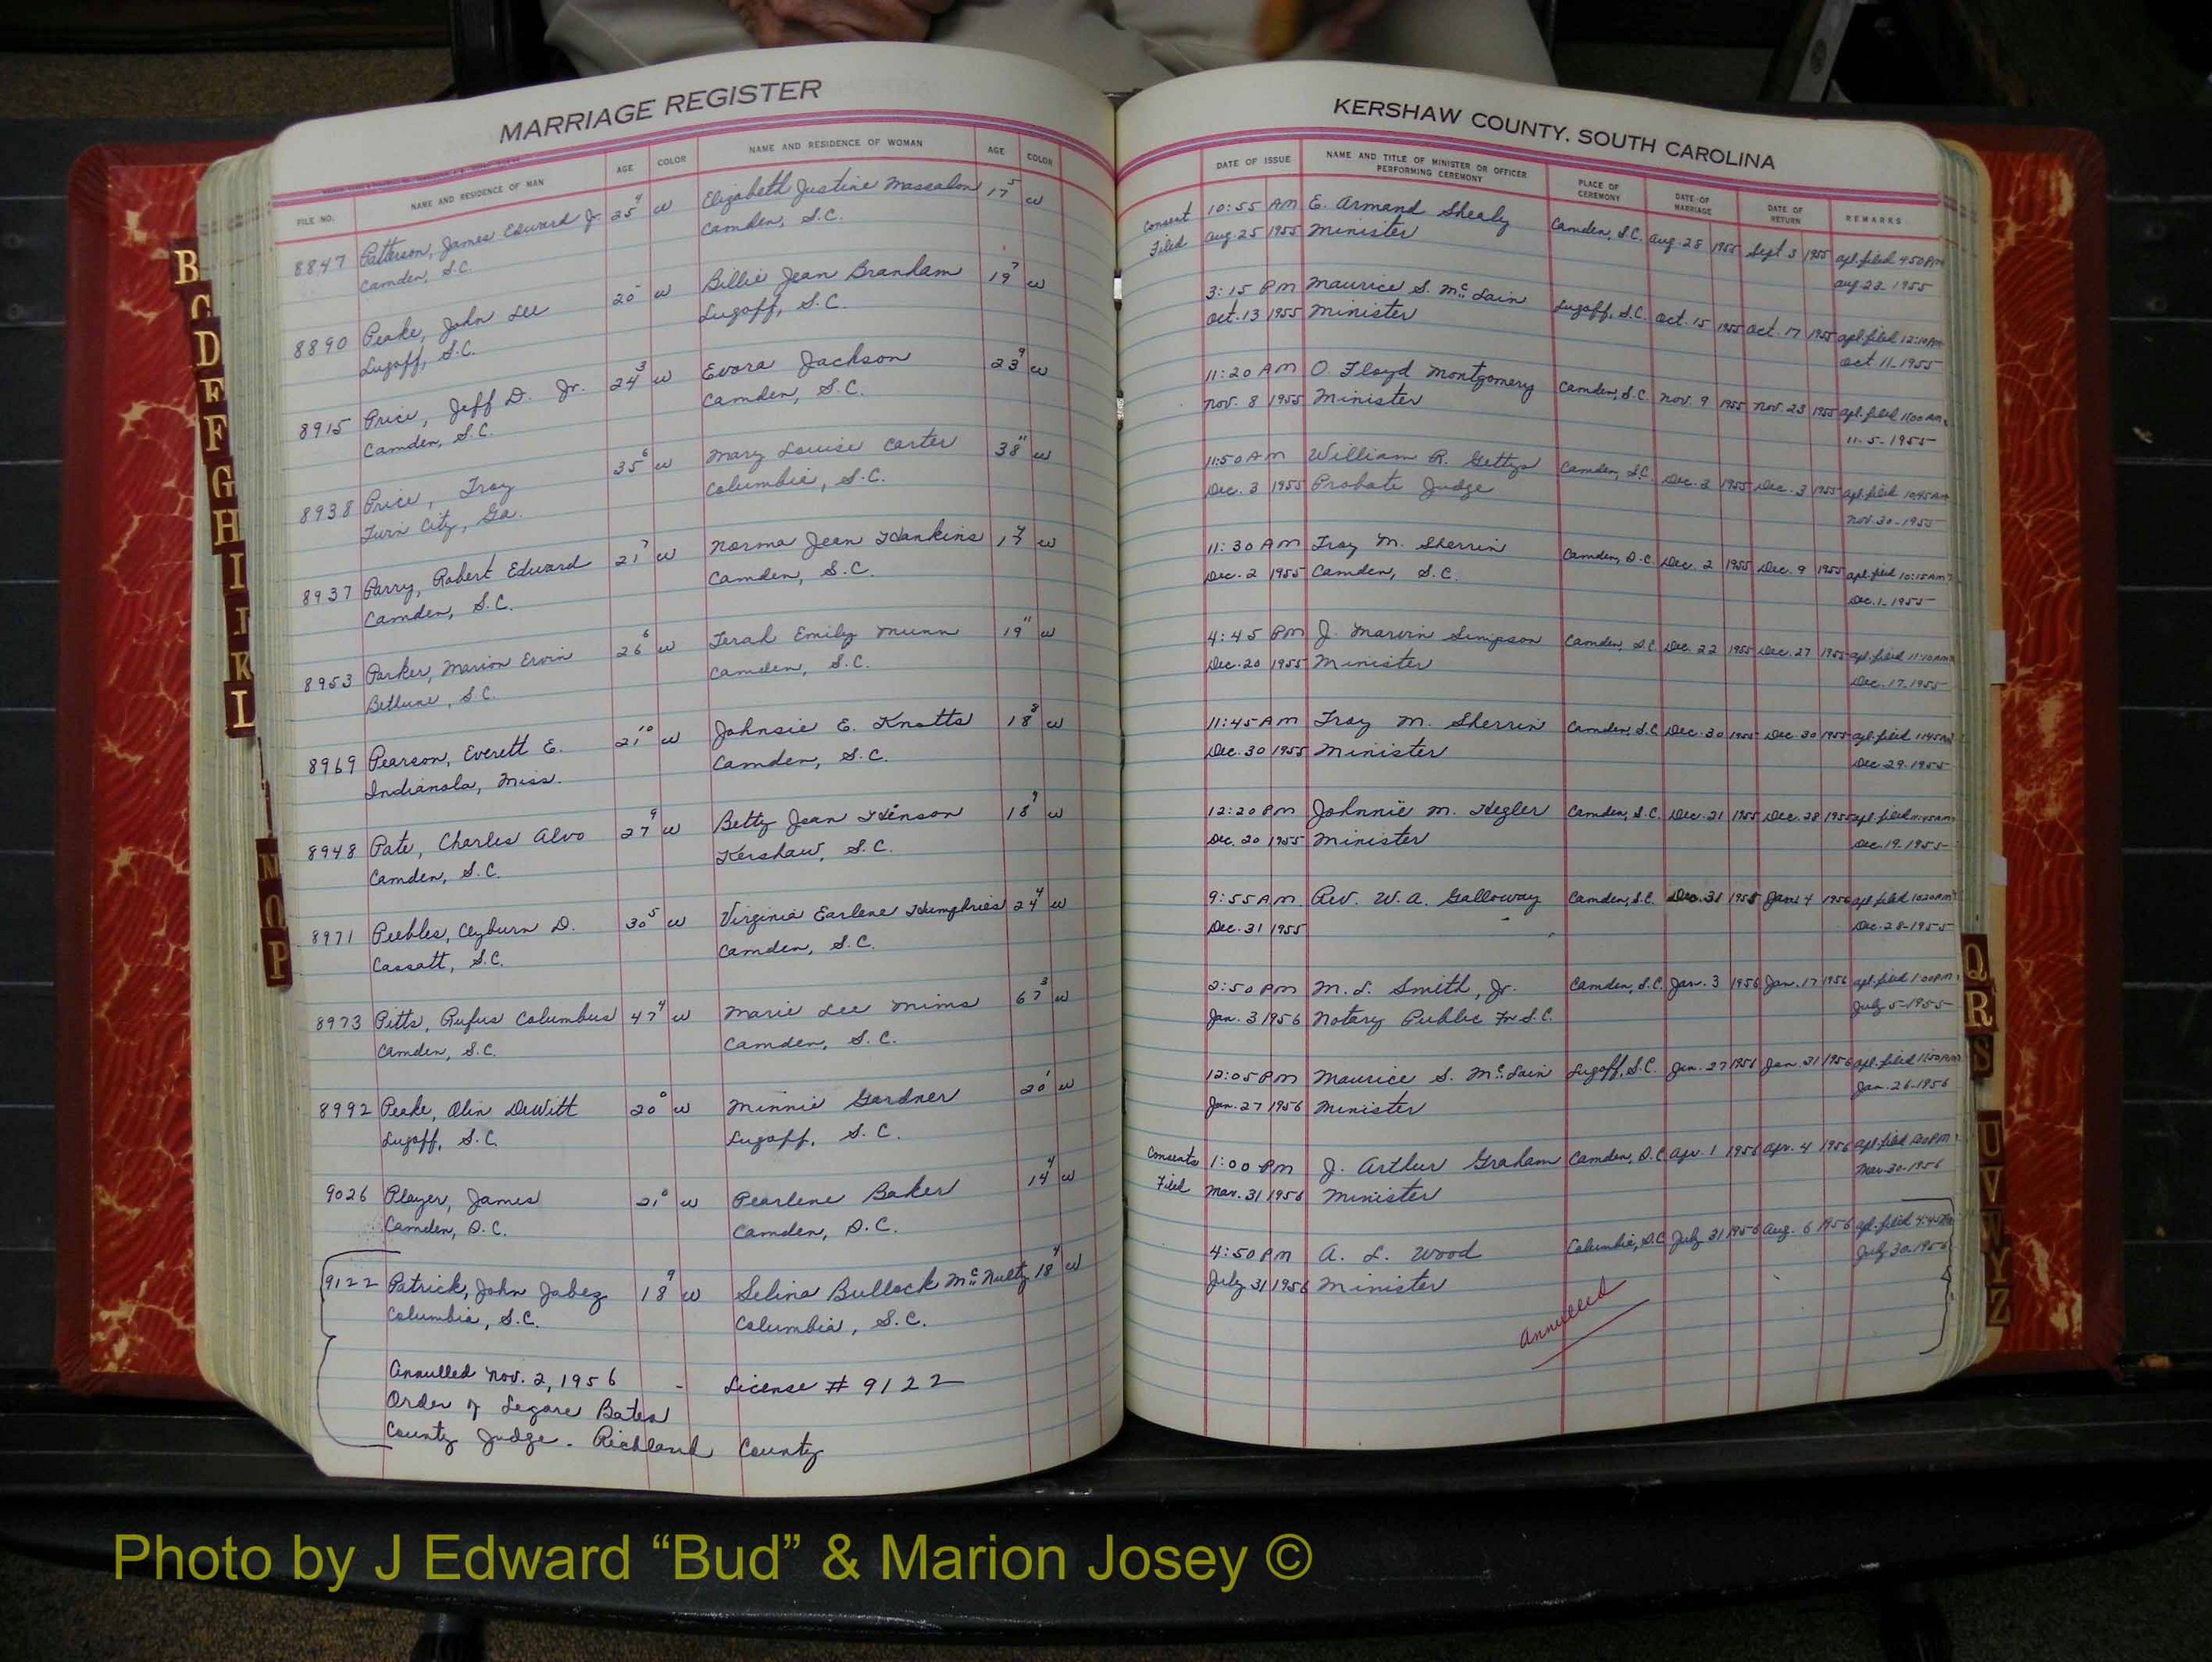 MARRIAGE REGISTER
FILE NO. NAME AND RESIDENCE OF MAN AGE COLOR NAME AND RESIDENCE OF WOMAN AGE COLOR
8847 Patterson, James Edward Jr. 25 9 w Elizabeth Justine 17 5 w
Camden, S.C. Camden, S.C.
8890 Peake, John Lee 20 w Billie Jean Branham 19 7 w
Lugoff, S.C. Lugoff, S.C.
8915 Price, Jeff D. Jr. 24 3 w Evora Jackson 23 9 w
Camden, S.C. Camden, S.C.
8938 Price, Troy 35 6 w Mary Louise Carter 38 11 w
City, Ga. Columbia, S.C.
8937 Parry, Robert Edward 21 7 w Norma Jean Hankins w
Camden, S.C. Camden, S.C.
8953 Parker, Marion Ervin 26 6 w Terah Emily Munn 19 11 w
Bethune, S.C. Camden, S.C.
8969 Pearson, Everett E. 21 10 w Johnsie E. Knotts 18 w
Indianola, Miss. Camden, S.C.
8948 Pate, Charles Alvo 27 9 w Betty Jean Hinson 18 w
Camden, S.C. Kershaw, S.C.
8971 Peebles, Clyburn D. 30 5 w Virginia Earlene Humphries 24 4 w
Cassatt, S.C. Camden, S.C.
8973 Pitts, Rufus Columbus 47 4 w Marie Lee Mims 67 3 w
Camden, S.C. Camden, S.C.
8992 Peake, Olin DeWitt 20 0 w Minnie Gardner 20 1 w
Lugoff, S.C. Lugoff, S.C.
9026 Player, James 21 0 w Pearlene Baker 14 4 w
Camden, S.C. Camden, S.C.
9122 Patrick, John Jabez 18 9 w Selina Bullock McNulty 18 4 w
Columbia, S.C. Columbia, S.C.
Annulled Nov. 2, 1956 - License # 9122
Order of Legare Bates
County Judge - Richland County
KERSHAW COUNTY, SOUTH CAROLINA
DATE OF ISSUE NAME AND TITLE OF MINISTER OR OFFICER PERFORMING CEREMONY PLACE OF CEREMONY DATE OF MARRIAGE DATE OF RETURN REMARKS
Consent 10:55 AM E. Armand Shealy Camden, S.C. Aug. 28 1955 Sept 3 1955 apl. filed 4:50 PM
Filed Aug. 25 1955 Minister Aug 23. 1955
3:15 PM Maurice S. McLain Lugoff, S.C. Oct. 15 1955 Oct. 17 1955 apl. filed
Oct. 13 1955 Minister Oct 11-1955
11:20 AM O Floyd Montgomery Camden, S.C. Nov. 9 1955 Nov. 23 1955 apl. filed 11:00 AM
Nov. 8 1955 Minister 11-5-1955
11:50 AM William R. Gettys Camden, S.C. Dec. 3 1955 Dec. 3 1955 apl. filed 10:45 AM
Dec. 3 1955 Probate Judge Nov. 30-1955
11:30 AM Troy M. Sherrin Camden, S.C. Dec. 2 1955 Dec. 9 1955 apl. filed 10:15 AM
Dec. 2 1955 Camden, S.C. Dec. 1-1955
4:45 PM J. Marvin Simpson Camden, S.C. Dec. 22 1955 Dec. 27 1955 apl. filed
Dec. 20 1955 Minister Dec. 17-1955
11:45 AM Troy M. Sherrin Camden, S.C. Dec. 30 1955 Dec. 30 1955 apl. filed
Dec. 30 1955 Minister Dec 29-1955
12:20 PM Johnnie M. Hegler Camden, S.C. Dec. 21 1955 Dec. 28 1955 apl. filed
Dec. 20 1955 Minister Dec. 19-1955
9:55 AM Rev. W. A. Galloway Camden, S.C. Dec. 31 1955 Jan. 4 1956 apl. filed
Dec. 31 1955 Dec. 28-1955
2:50 PM M. L. Smith, Jr. Camden, S.C. Jan. 3 1956 Jan. 17 1956 apl. filed 1:00 PM
Jan. 3 1956 Notary Public for S.C. July 5-1955
12:05 PM Maurice S. McLain Lugoff, S.C. Jan. 27 1956 Jan 31 1956 apl. filed
Jan. 27 1956 Minister Jan. 26-1956
Consents 1:00 PM J. Arthur Graham Camden, S.C. Apr. 1 1956 Apr. 4 1956 apl. filed
Filed Mar. 31 1956 Minister Mar. 30-1956
4:50 PM A. L. Wood Columbia, S.C. July 31 1956 Aug. 6 1956 apl. filed
July 31 1956 Minister July 30-1956
Annulled
B
C
D
E
F
G
H
I
J
K
L
N
O
P
Q
R
S
U
V
W
Y
Z
Photo by J Edward “Bud” & Marion Josey ©